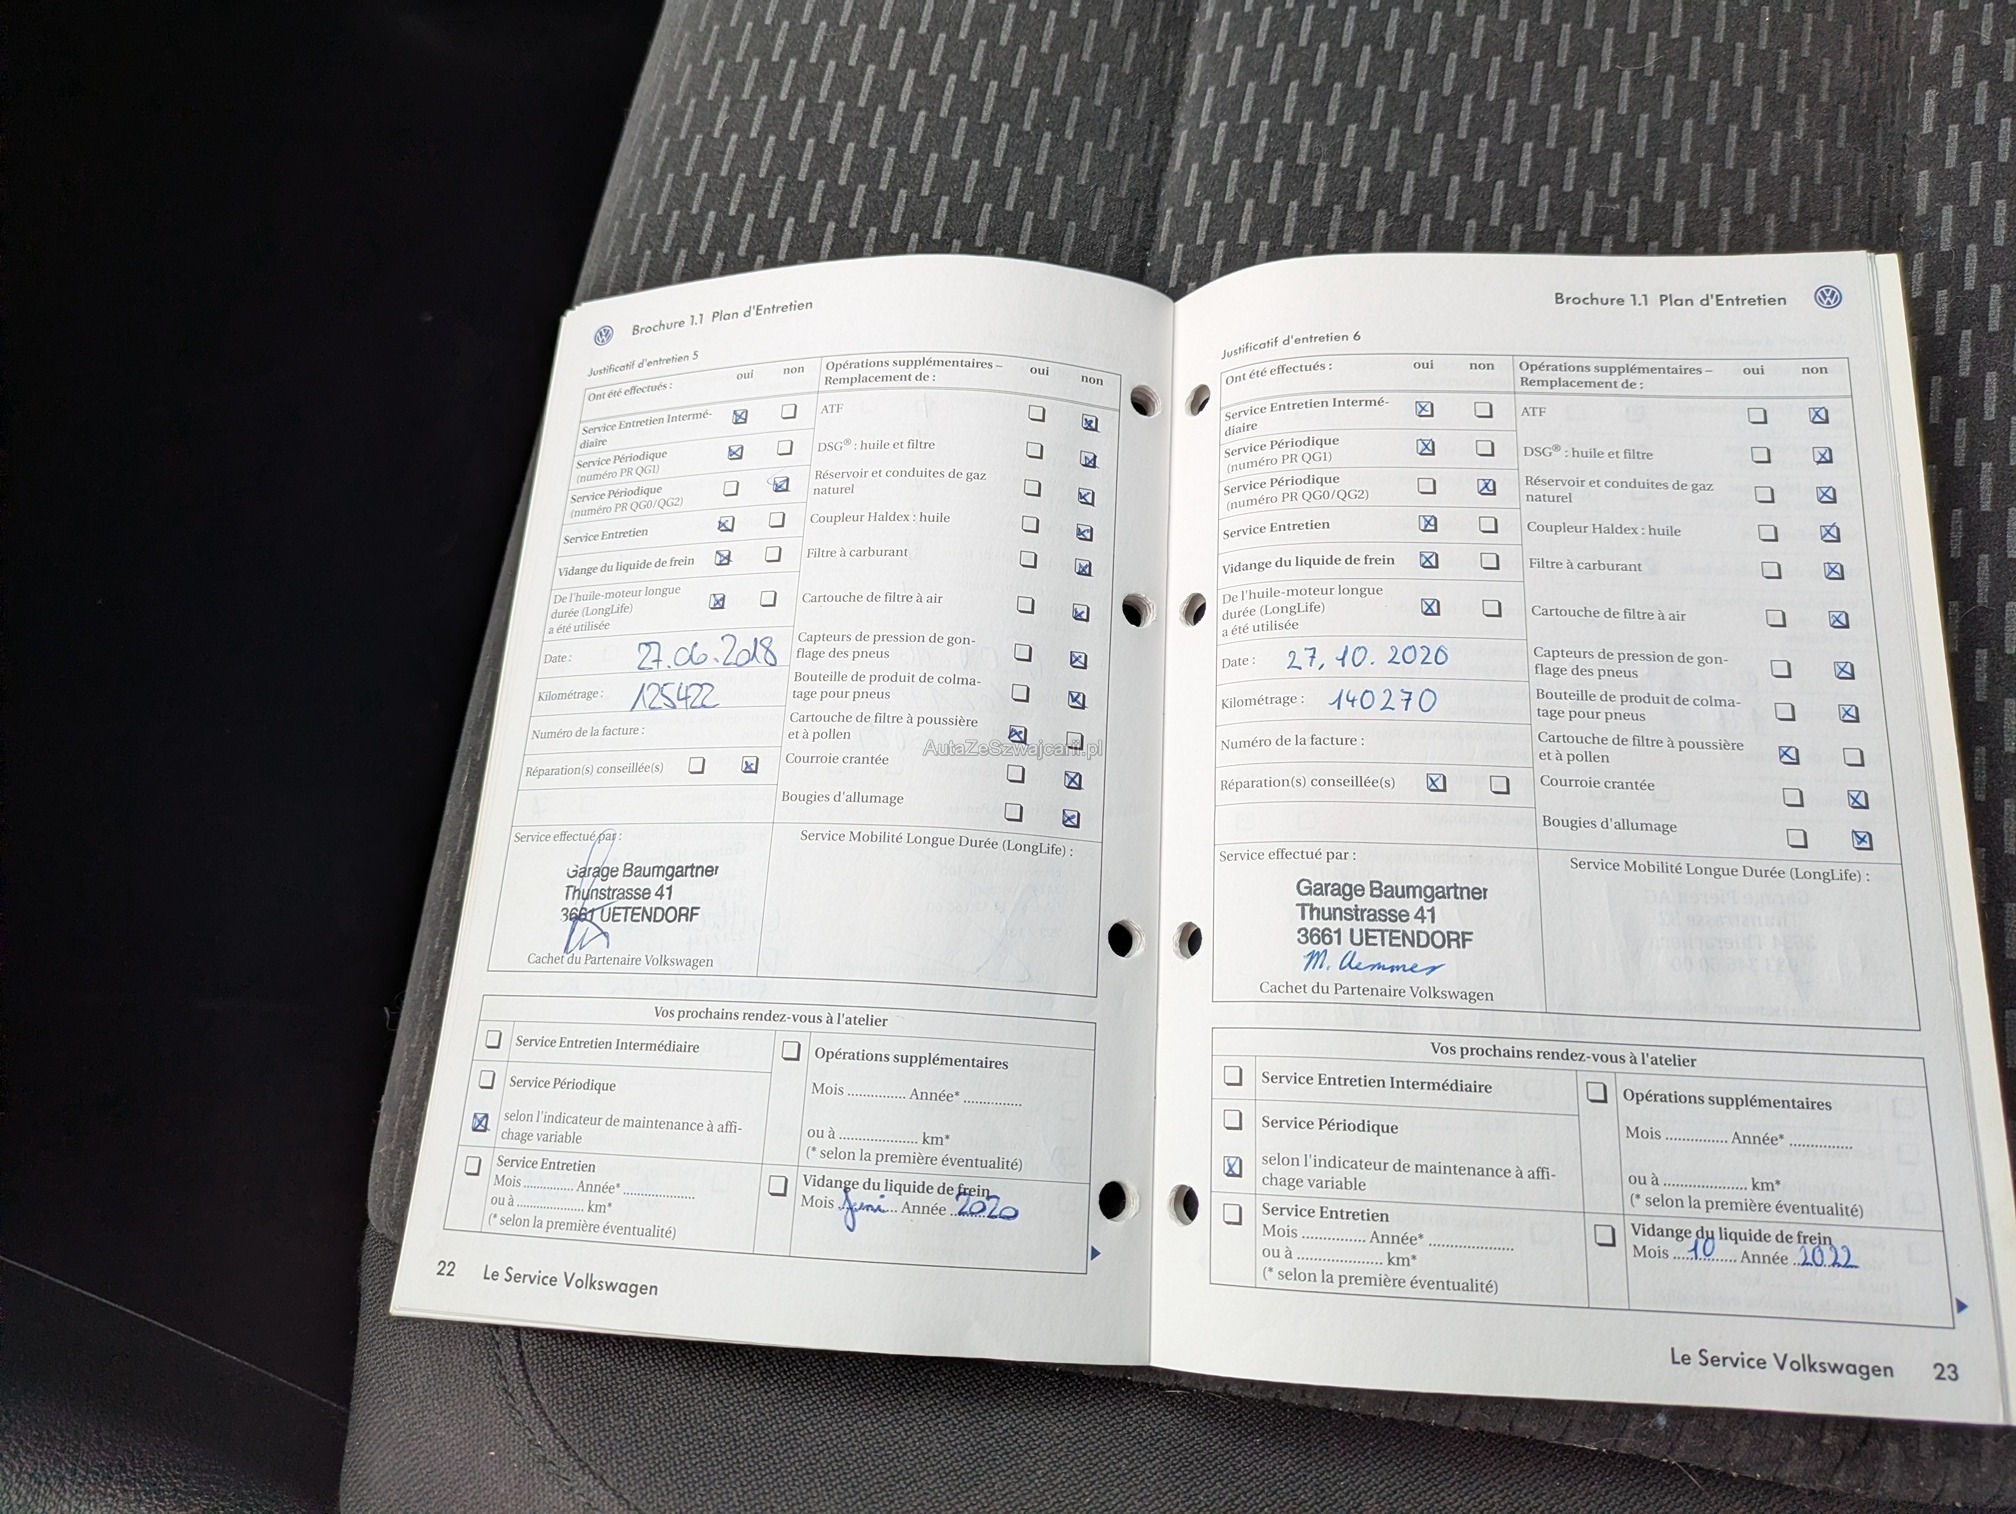 Brochure 1.1 Plan d'Entretien
Justificatif d'entretien 5
Ont été effectués :
oui
non
Opérations supplémentaires –
Remplacement de :
oui
non
Service Entretien Intermé-
diaire
Service Périodique
(numéro PR QG1)
Service Périodique
(numéro PR QG0/QG2)
Service Entretien
Vidange du liquide de frein
De l'huile-moteur longue
durée (LongLife)
a été utilisée
Date : 27.06.2018
Kilométrage : 125422
Numéro de la facture :
Réparation(s) conseillée(s)
ATF
DSG® : huile et filtre
Réservoir et conduites de gaz
naturel
Coupleur Haldex : huile
Filtre à carburant
Cartouche de filtre à air
Capteurs de pression de gon-
flage des pneus
Bouteille de produit de colma-
tage pour pneus
Cartouche de filtre à poussière
et à pollen
AutaZeSzwajcarii.pl
Courroie crantée
Bougies d'allumage
Service effectué par :
Garage Baumgartner
Thunstrasse 41
3661 UETENDORF
Cachet du Partenaire Volkswagen
Service Mobilité Longue Durée (LongLife) :
Vos prochains rendez-vous à l'atelier
Service Entretien Intermédiaire
Service Périodique
selon l'indicateur de maintenance à affi-
chage variable
Service Entretien
Mois ............. Année* ..................
ou à ................... km*
(* selon la première éventualité)
Opérations supplémentaires
Mois ............... Année* ...............
ou à .................... km*
(* selon la première éventualité)
Vidange du liquide de frein
Mois Juni Année 2020
22 Le Service Volkswagen
Brochure 1.1 Plan d'Entretien
Justificatif d'entretien 6
Ont été effectués :
oui
non
Opérations supplémentaires –
Remplacement de :
oui
non
Service Entretien Intermé-
diaire
Service Périodique
(numéro PR QG1)
Service Périodique
(numéro PR QG0/QG2)
Service Entretien
Vidange du liquide de frein
De l'huile-moteur longue
durée (LongLife)
a été utilisée
Date : 27.10.2020
Kilométrage : 140270
Numéro de la facture :
Réparation(s) conseillée(s)
ATF
DSG® : huile et filtre
Réservoir et conduites de gaz
naturel
Coupleur Haldex : huile
Filtre à carburant
Cartouche de filtre à air
Capteurs de pression de gon-
flage des pneus
Bouteille de produit de colma-
tage pour pneus
Cartouche de filtre à poussière
et à pollen
Courroie crantée
Bougies d'allumage
Service effectué par :
Garage Baumgartner
Thunstrasse 41
3661 UETENDORF
Cachet du Partenaire Volkswagen
Service Mobilité Longue Durée (LongLife) :
Vos prochains rendez-vous à l'atelier
Service Entretien Intermédiaire
Service Périodique
selon l'indicateur de maintenance à affi-
chage variable
Service Entretien
Mois ................ Année* ......................
ou à ..................... km*
(* selon la première éventualité)
Opérations supplémentaires
Mois ............... Année* ...............
ou à .................... km*
(* selon la première éventualité)
Vidange du liquide de frein
Mois 10 Année 2022
Le Service Volkswagen 23